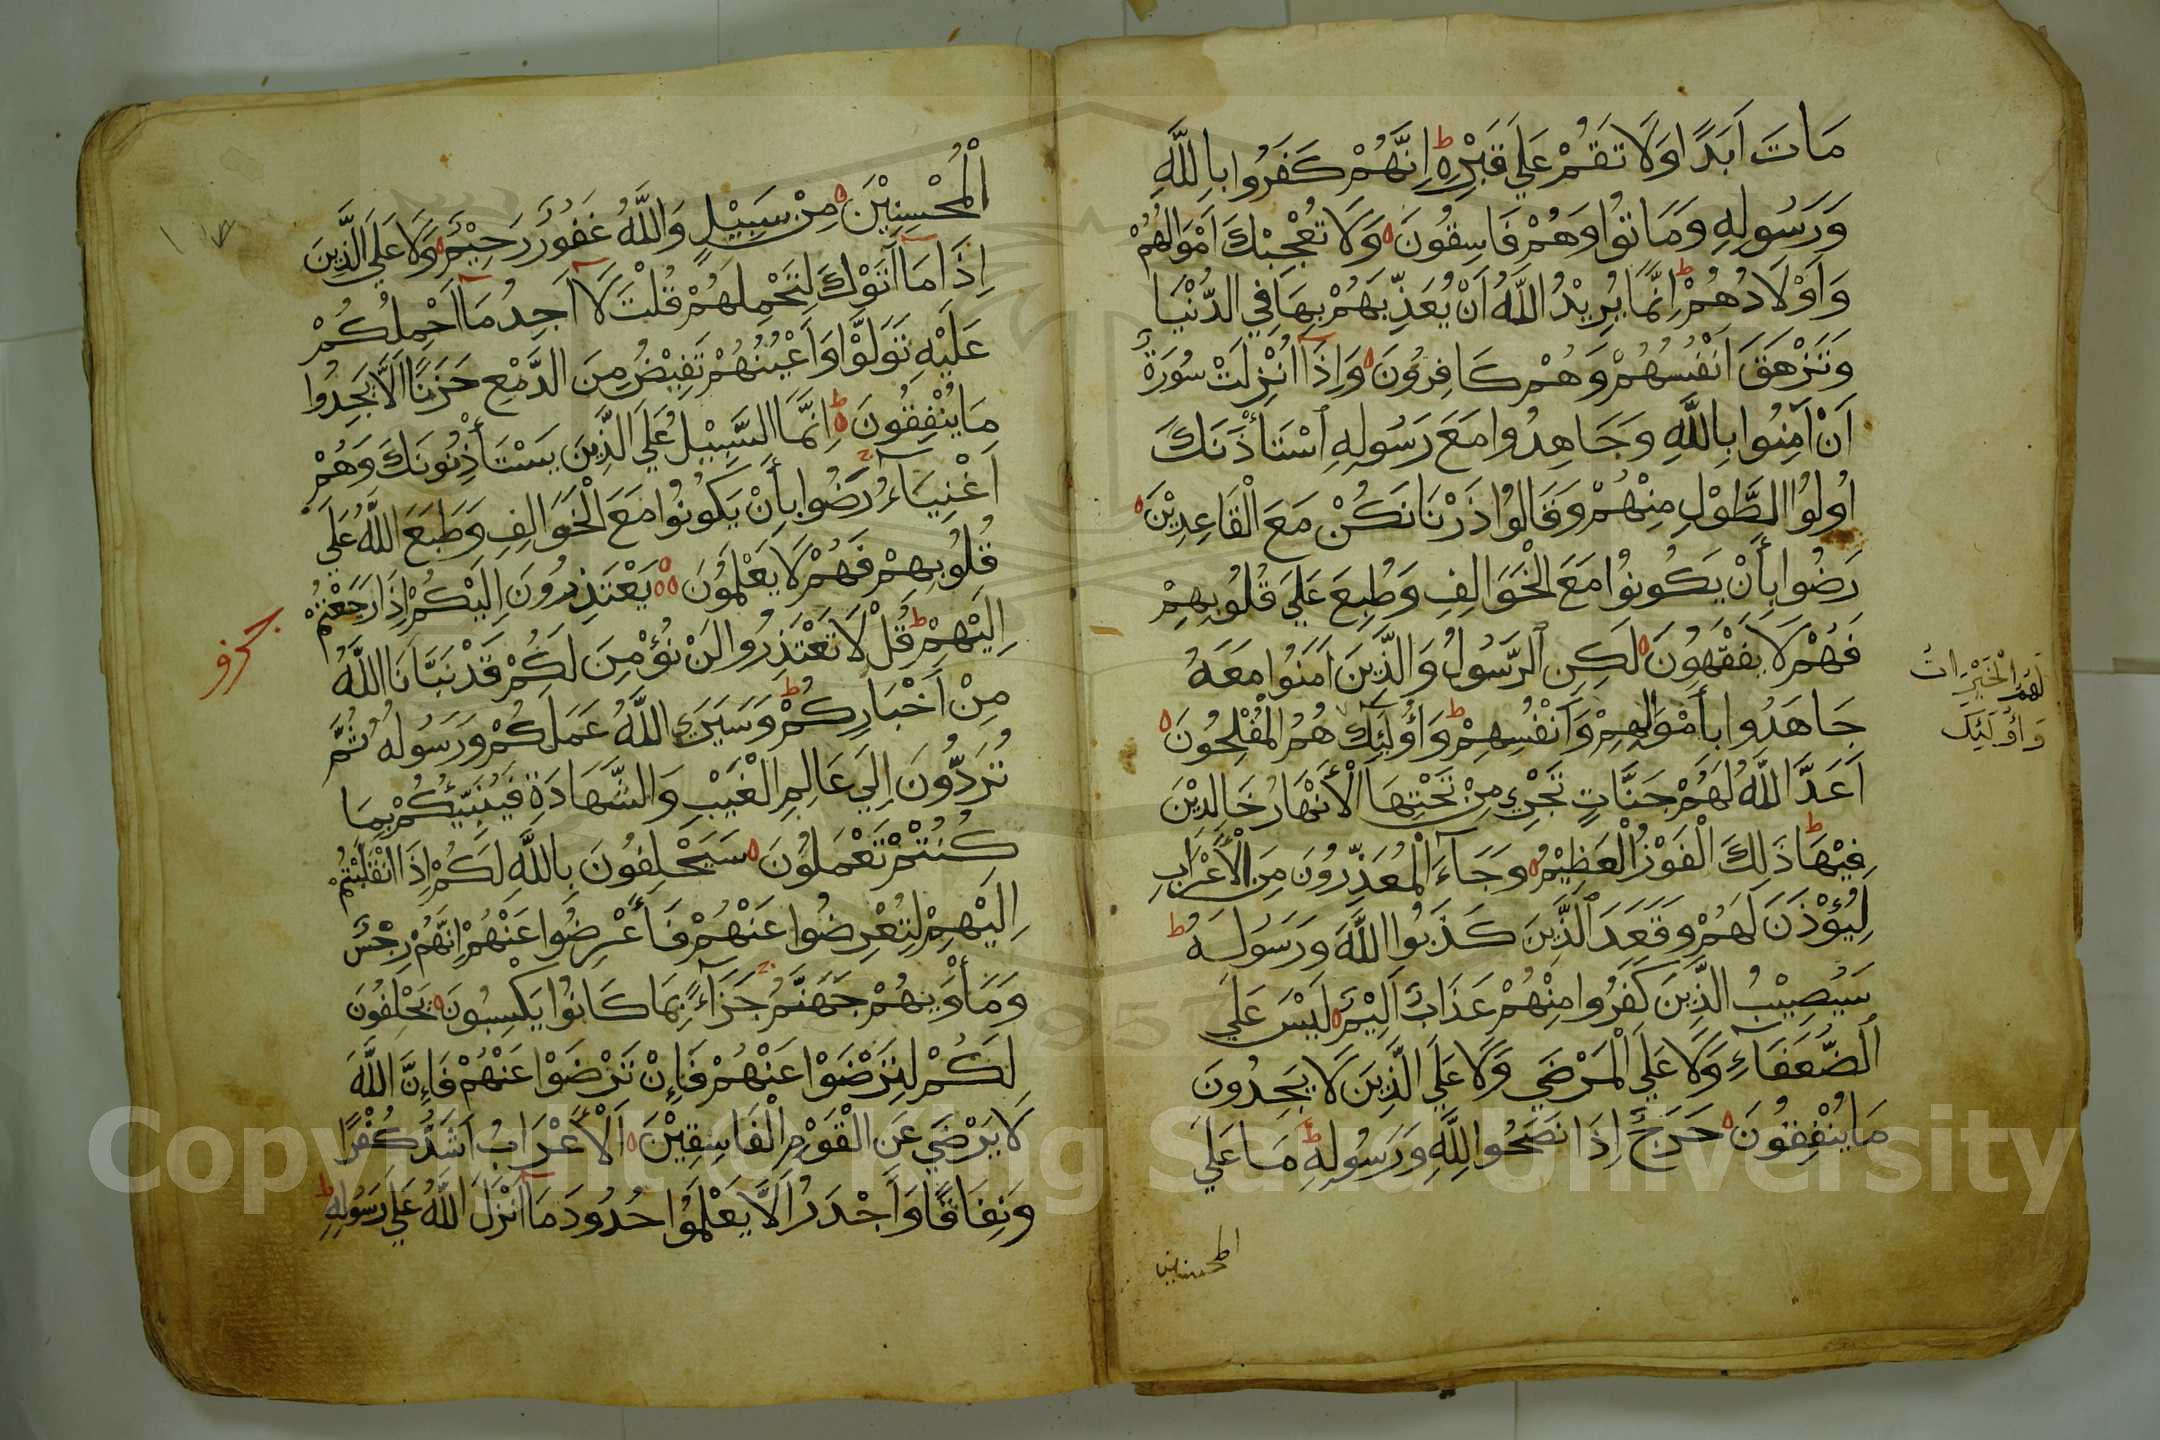 مَاتَ اَبَدًا وَلَا تَقُمْ عَلَي قَبْرِهِ ط اِنَّهُمْ كَفَرُوا بِاللَّهِ
وَرَسُولِهِ وَمَاتُوا وَهُمْ فَاسِقُونَ ه وَلَا تُعْجِبْكَ اَمْوَالُهُمْ
وَاَوْلَادُهُمْ ط اِنَّمَا يُرِيْدُ اللَّهُ اَنْ يُعَذِّبَهُمْ بِهَا فِي الدُّنْيَا
وَتَزْهَقَ اَنْفُسُهُمْ وَهُمْ كَافِرُونَ ه وَاِذَا اُنْزِلَتْ سُورَةٌ
اَنْ آمِنُوا بِاللَّهِ وَجَاهِدُوا مَعَ رَسُولِهِ ٱسْتَأْذَنَكَ
اُولُوا الطَّوْلِ مِنْهُمْ وَقَالُوا ذَرْنَا نَكُنْ مَعَ الْقَاعِدِيْنَ ه
رَضُوا بِأَنْ يَكُونُوا مَعَ الْخَوَالِفِ وَطُبِعَ عَلَي قُلُوبِهِمْ
فَهُمْ لَا يَفْقَهُونَ ه لَكِنِ ٱلرَّسُولُ وَالَّذِينَ اَمَنُوا مَعَهُ
جَاهَدُوا بِأَمْوَالِهِمْ وَأَنْفُسِهِمْ ط وَاُولَئِكَ هُمُ الْمُفْلِحُونَ ه
لَهُمُ الْخَيْرَاتُ
وَاُولَئِكَ
اَعَدَّ اللَّهُ لَهُمْ جَنَّاتٍ تَجْرِي مِنْ تَحْتِهَا الْأَنْهَارُ خَالِدِيْنَ
فِيْهَا ط ذَلِكَ الْفَوْزُ الْعَظِيْمُ ه وَجَآءَ الْمُعَذِّرُونَ مِنَ الْأَعْرَابِ
لِيُؤْذَنَ لَهُمْ وَقَعَدَ ٱلَّذِينَ كَذَبُوا اللَّهَ وَرَسُولَهُ ط
سَيُصِيْبُ الَّذِينَ كَفَرُوا مِنْهُمْ عَذَابٌ اَلِيْمٌ ه لَيْسَ عَلَي
ٱلضُّعَفَآءِ وَلَا عَلَي الْمَرْضَي وَلَا عَلَي الَّذِينَ لَا يَجِدُونَ
مَا يُنْفِقُونَ ه حَرَجٌ اِذَا نَصَحُوا لِلَّهِ وَرَسُولِهِ ط مَا عَلَي
المحسنين
الْمُحْسِنِيْنَ ه مِنْ سَبِيْلٍ وَاللَّهُ غَفُورٌ رَحِيْمٌ ه وَلَا عَلَي الَّذِينَ
اِذَا مَا اَتَوْكَ لِتَحْمِلَهُمْ قُلْتَ لَا اَجِدُ مَا اَحْمِلُكُمْ
عَلَيْهِ تَوَلَّوْا وَاَعْيُنُهُمْ تَفِيْضُ مِنَ الدَّمْعِ حَزَنًا اَلَّا يَجِدُوا
مَا يُنْفِقُونَ ه ط اِنَّمَا السَّبِيْلُ عَلَي الَّذِينَ يَسْتَأْذِنُونَكَ وَهُمْ
اَغْنِيَآءُ رَضُوا بِأَنْ يَكُونُوا مَعَ الْخَوَالِفِ وَطَبَعَ اللَّهُ عَلَي
قُلُوبِهِمْ فَهُمْ لَا يَعْلَمُونَ ه ه يَعْتَذِرُونَ اِلَيْكُمْ اِذَا رَجَعْتُمْ
اِلَيْهِمْ ط قُلْ لَا تَعْتَذِرُوا لَنْ نُؤْمِنَ لَكُمْ قَدْ نَبَّاَنَا اللَّهُ
مِنْ اَخْبَارِكُمْ ط وَسَيَرَي اللَّهُ عَمَلَكُمْ وَرَسُولُهُ ثُمَّ
تُرَدُّونَ اِلَي عَالِمِ الْغَيْبِ وَالشَّهَادَةِ فَيُنَبِّئُكُمْ بِمَا
كُنْتُمْ تَعْمَلُونَ ه سَيَحْلِفُونَ بِاللَّهِ لَكُمْ اِذَا انْقَلَبْتُمْ
اِلَيْهِمْ لِتُعْرِضُوا عَنْهُمْ فَأَعْرِضُوا عَنْهُمْ اِنَّهُمْ رِجْسٌ
وَمَأْوَيهُمْ جَهَنَّمُ جَزَآءً بِمَا كَانُوا يَكْسِبُونَ ه يَحْلِفُونَ
لَكُمْ لِتَرْضَوْا عَنْهُمْ فَاِنْ تَرْضَوْا عَنْهُمْ فَاِنَّ اللَّهَ
لَا يَرْضَي عَنِ الْقَوْمِ الْفَاسِقِيْنَ ه اَلْأَعْرَابُ اَشَدُّ كُفْرًا
وَنِفَاقًا وَاَجْدَرُ اَلَّا يَعْلَمُوا حُدُودَ مَا اَنْزَلَ اللَّهُ عَلَي رَسُولِهِ ط
Copyright © King Saud University